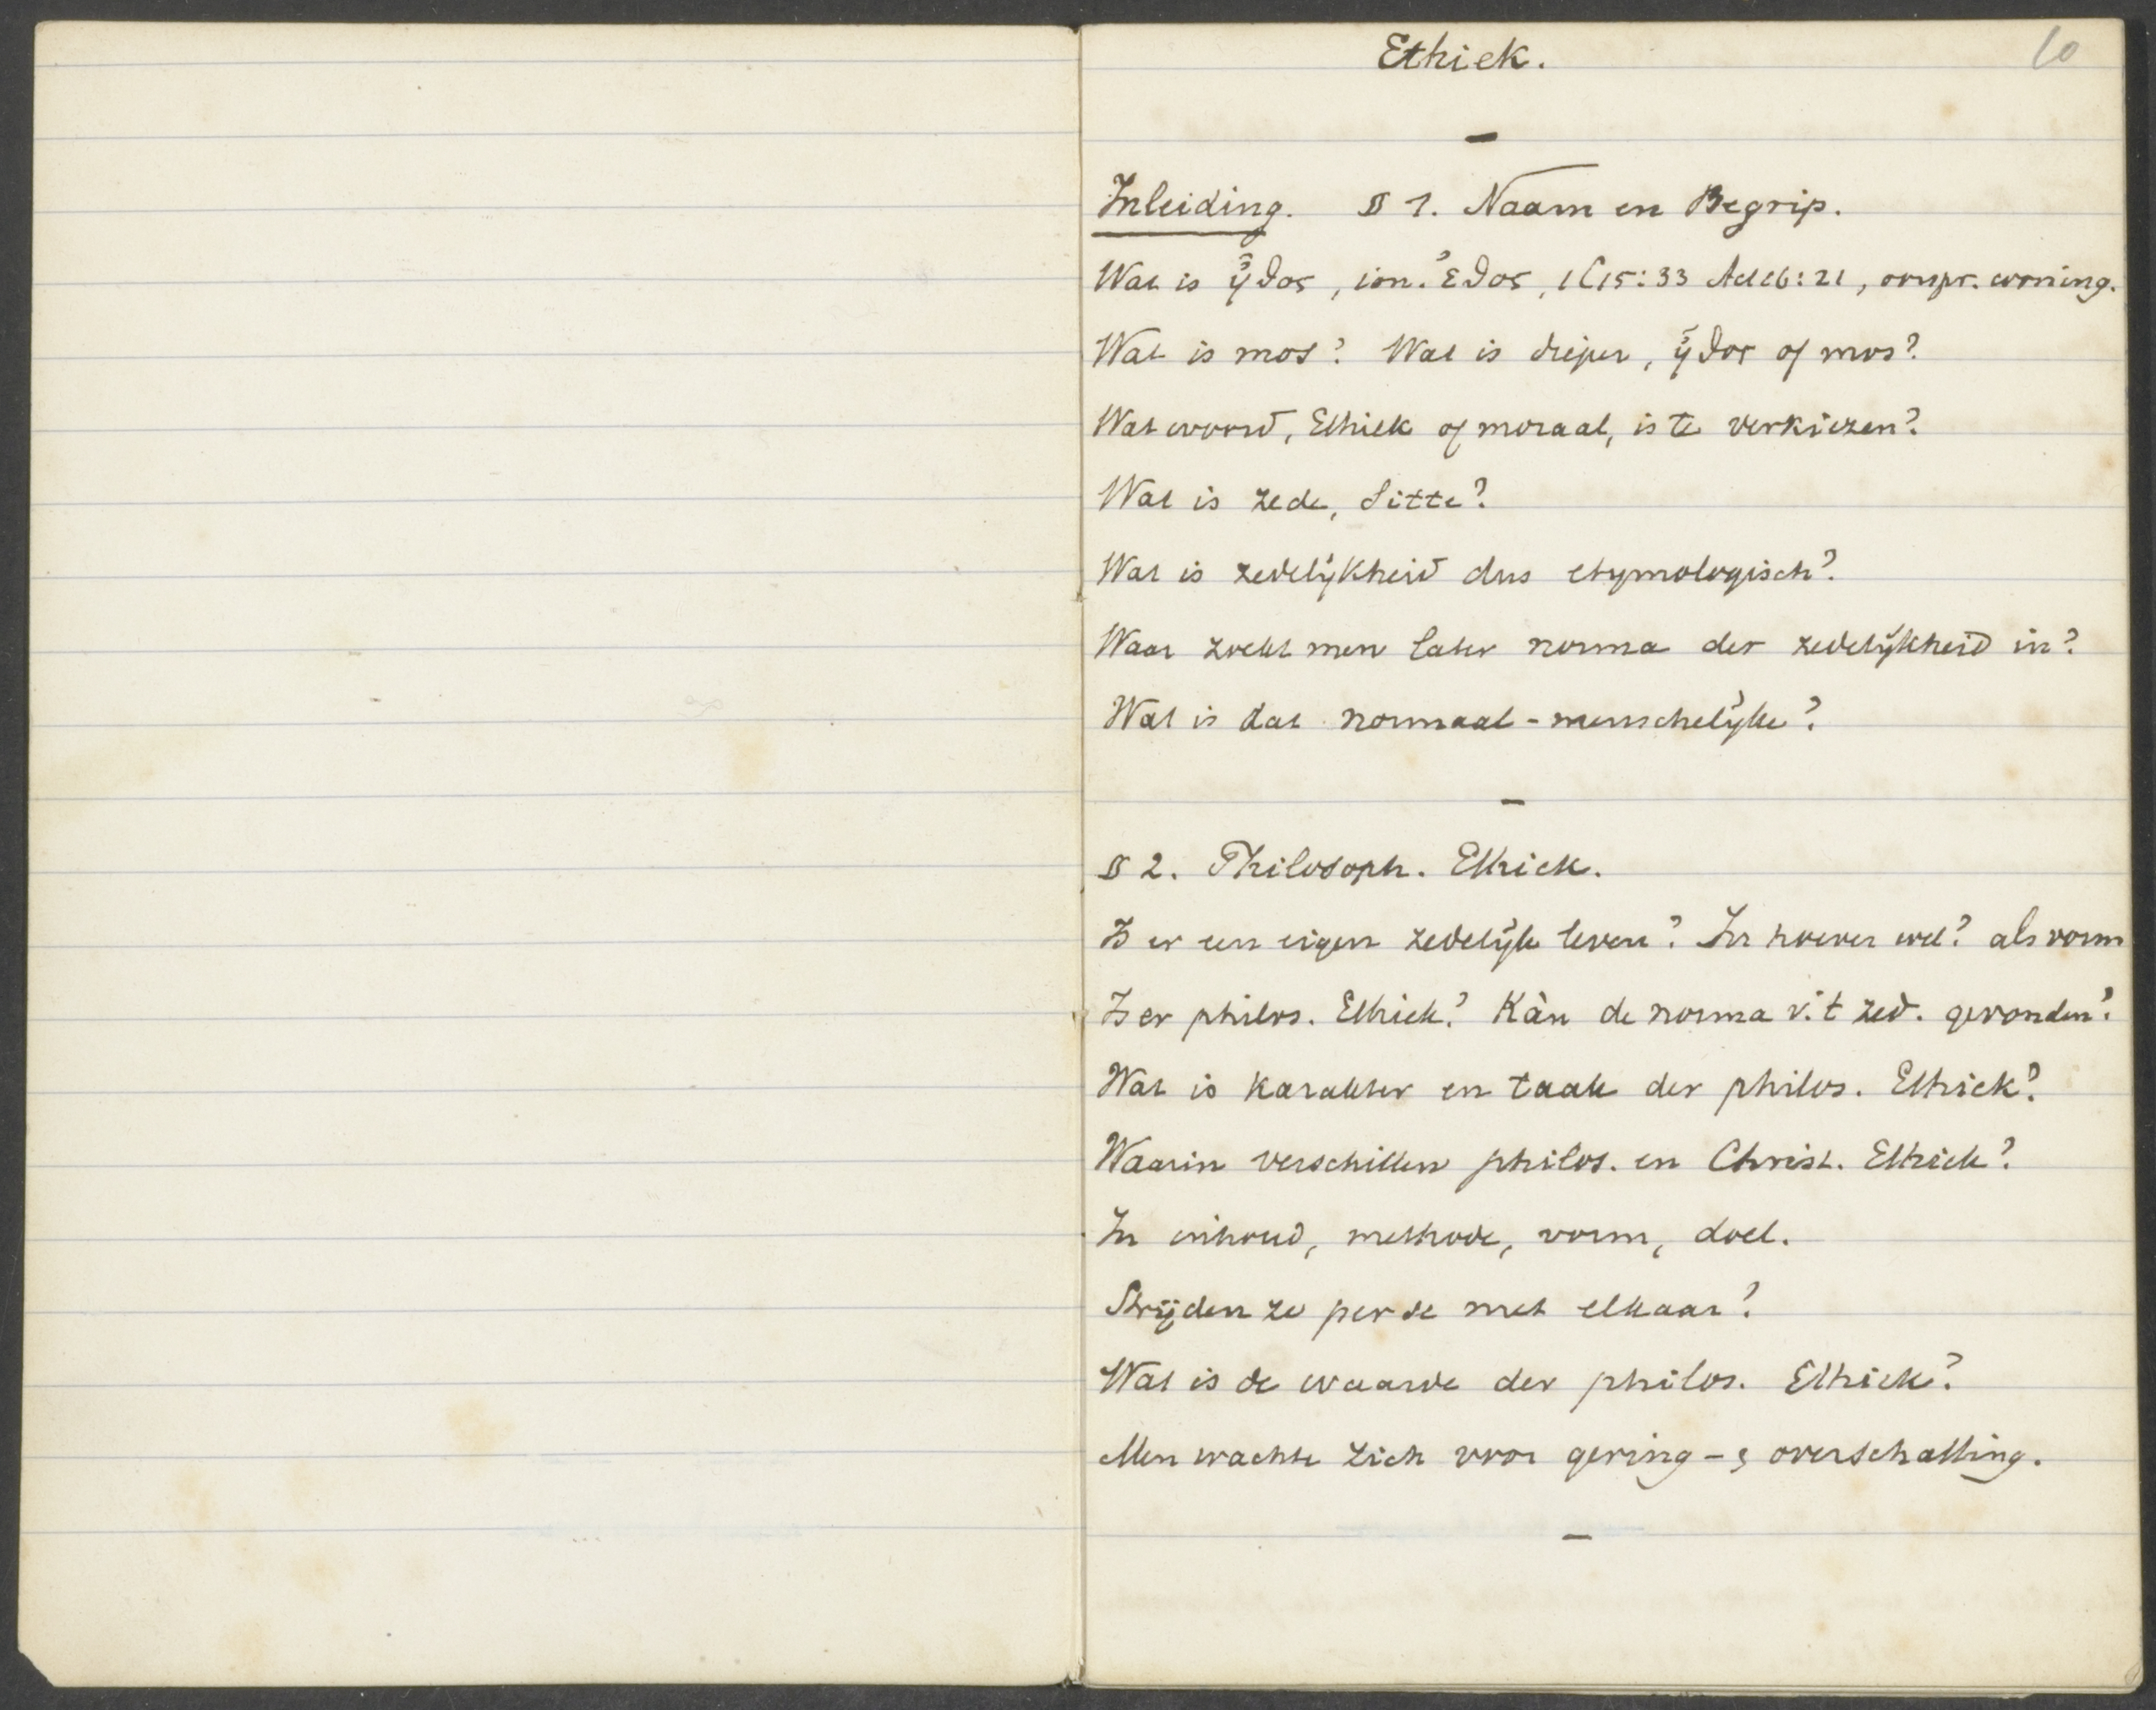 Ethiek.
10
Inleiding. § 1. Naam en Begrip.
Wat is ἦθος, ion. ἔθος, 1C15:33 Act16:21, oorspr. woning.
Wat is mos? Wat is dieper, ἦθος of mos?
Wat woord, Ethiek of moraal, is te verkiezen?
Wat is zede, Sitte?
Wat is zedelijkheid dus etymologisch?
Waar zocht men later norma der zedelijkheid in?
Wat is dat normaal-menschelijke?
§ 2. Philosoph. Ethiek.
Is er een eigen zedelijk leven? In hoever wel? als vorm
Is er philos. Ethiek? Kàn de norma v.'t zed. gevonden?
Wat is karakter en taak der philos. Ethiek?
Waarin verschillen philos. en Christ. Ethiek?
In inhoud, methode, vorm, doel.
Strijden ze per se met elkaar?
Wat is de waarde der philos. Ethiek?
Men wachte zich voor gering- & overschatting.